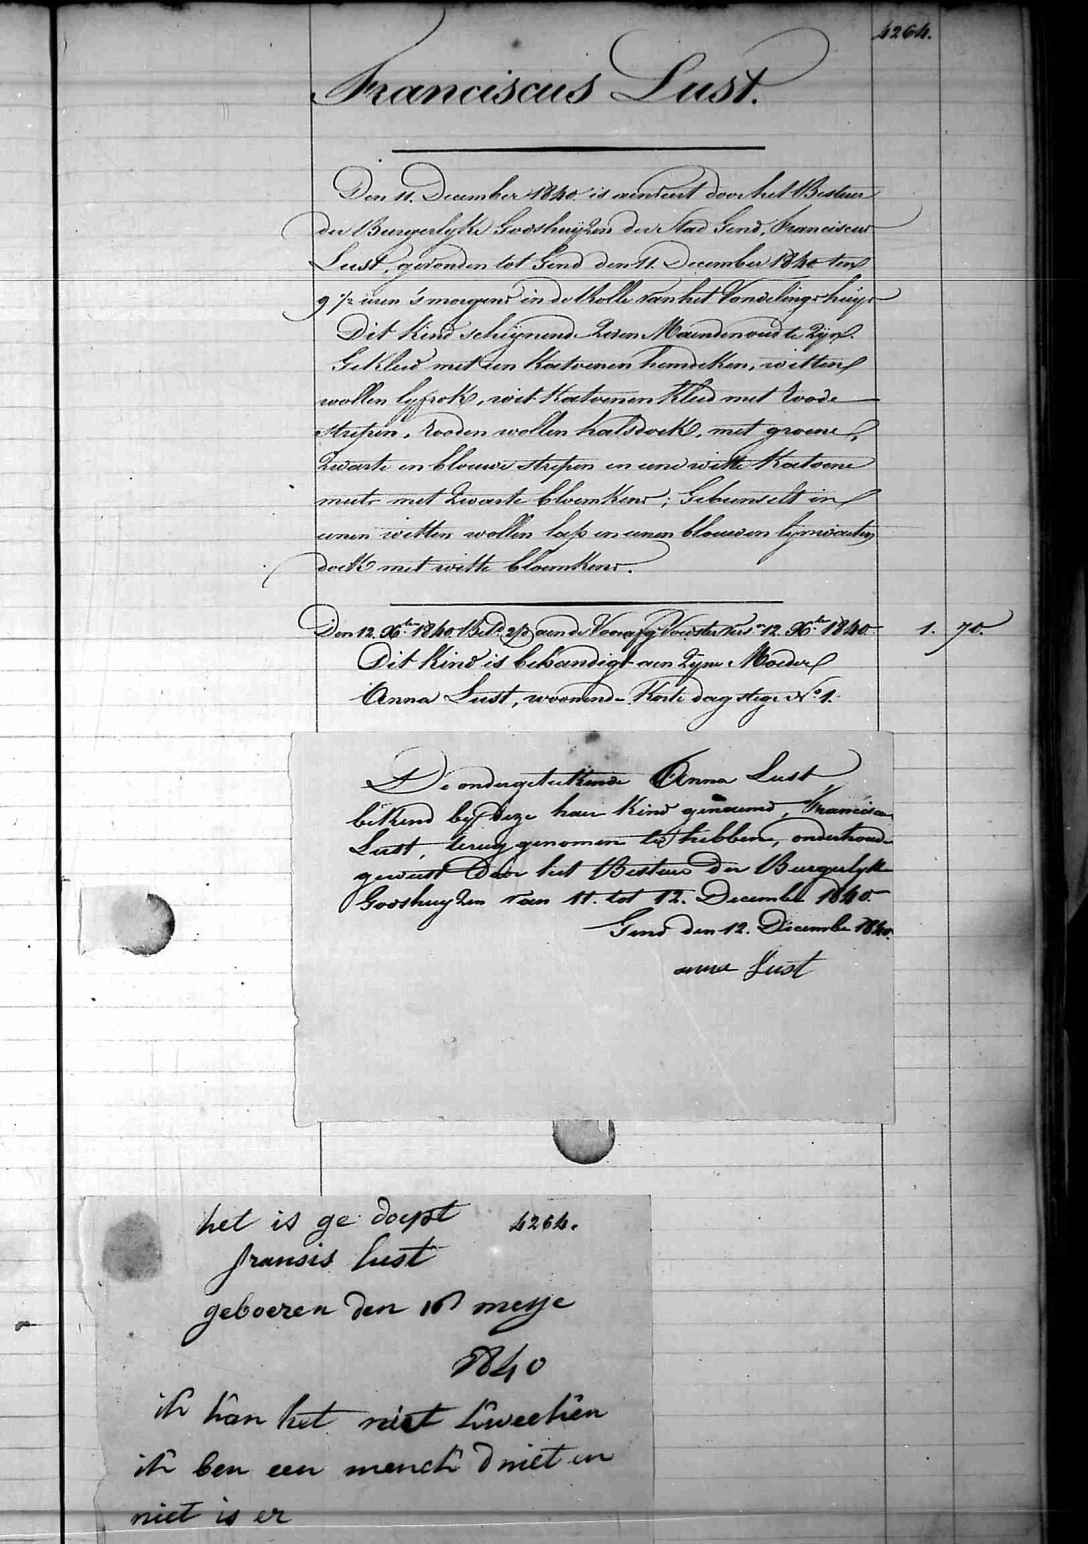 4264.
Franciscus Lust.
Den 11. December 1840. is aenveert door het Bestuer
der Burgerlyke Godshuyzen der Stad Gend, Franciscus
Lust, gevonden tot Gend den 11. December 1840 ten
9 1/2 uren 's morgens in de Rolle van het Vondelingshuys
Dit Kind schijnende zeven Maenden oud te zijn.
Gekleed met een Katoenen hemdeken, witten
wollen lyfrok, wit Katoenen Kleed met roode
strepen, rooden wollen halsdoek, met groene,
zwarte en blouwe strepen en eene witte Katoene
muts met zwarte bloemkens; Gebunselt in
eenen witten wollen lap en eenen blouwen lynwaeten
doek met witte bloemkens.
Den 12. Xbre 1840. aen de Voedster 12. Xbre 1840. 1. 70.
Dit Kind is behandigt aen zijne Moeder
Anna Lust, woonende Korte dagstege No 1.
De ondergeteekende Anna Lust
bekend by deze haer Kind genaemd, Franciscus
Lust, terug genomen te hebben, onderhouden
geweest door het Bestuer der Burgerlyke
Godshuyzen van 11. tot 12. December 1840.
Gend den 12. December 1840.
anna Lust
het is ge doept 4264.
fransis lust
geboeren den meye
1840
ik kan het niet kweeken
ik ben een mench d niet en
niet is er